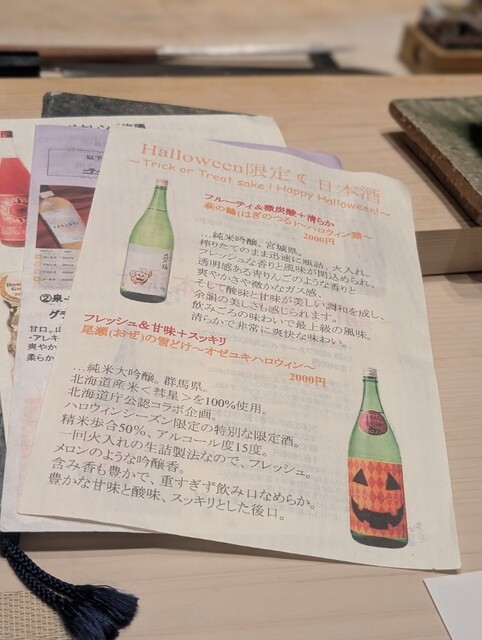 Halloween限定☾日本酒
~Trick or Treat sake! Happy Halloween!~
フルーティ&微炭酸+清らか
萩の鶴(はぎのつる)~ハロウィン猫~
2000円
…純米吟醸。宮城県。
搾りたてのまま迅速に瓶詰、火入れ。
フレッシュな香りと風味が閉込められ、
透明感ある青りんごのような香りと
爽やかさや微かなガス感、
そして酸味と甘味が美しい調和を成し、
余韻の美しさも感じられます。
飲みごろの味わいで最上級の風味。
清らかで非常に爽快な味わい。
フレッシュ&甘味+スッキリ
尾瀬(おぜ)の雪どけ~オゼユキハロウィン~
2000円
…純米大吟醸。群馬県。
北海道産米<彗星>を100%使用。
北海道庁公認コラボ企画。
ハロウィンシーズン限定の特別な限定酒。
精米歩合50%、アルコール度15度。
一回火入れの生詰製法なので、フレッシュ。
メロンのような吟醸香。
含み香も豊かで、重すぎず飲み口なめらか。
豊かな甘味と酸味、スッキリとした後口。
以下
②泉
グラ
甘口。山
・アレキ
爽やか
柔らか